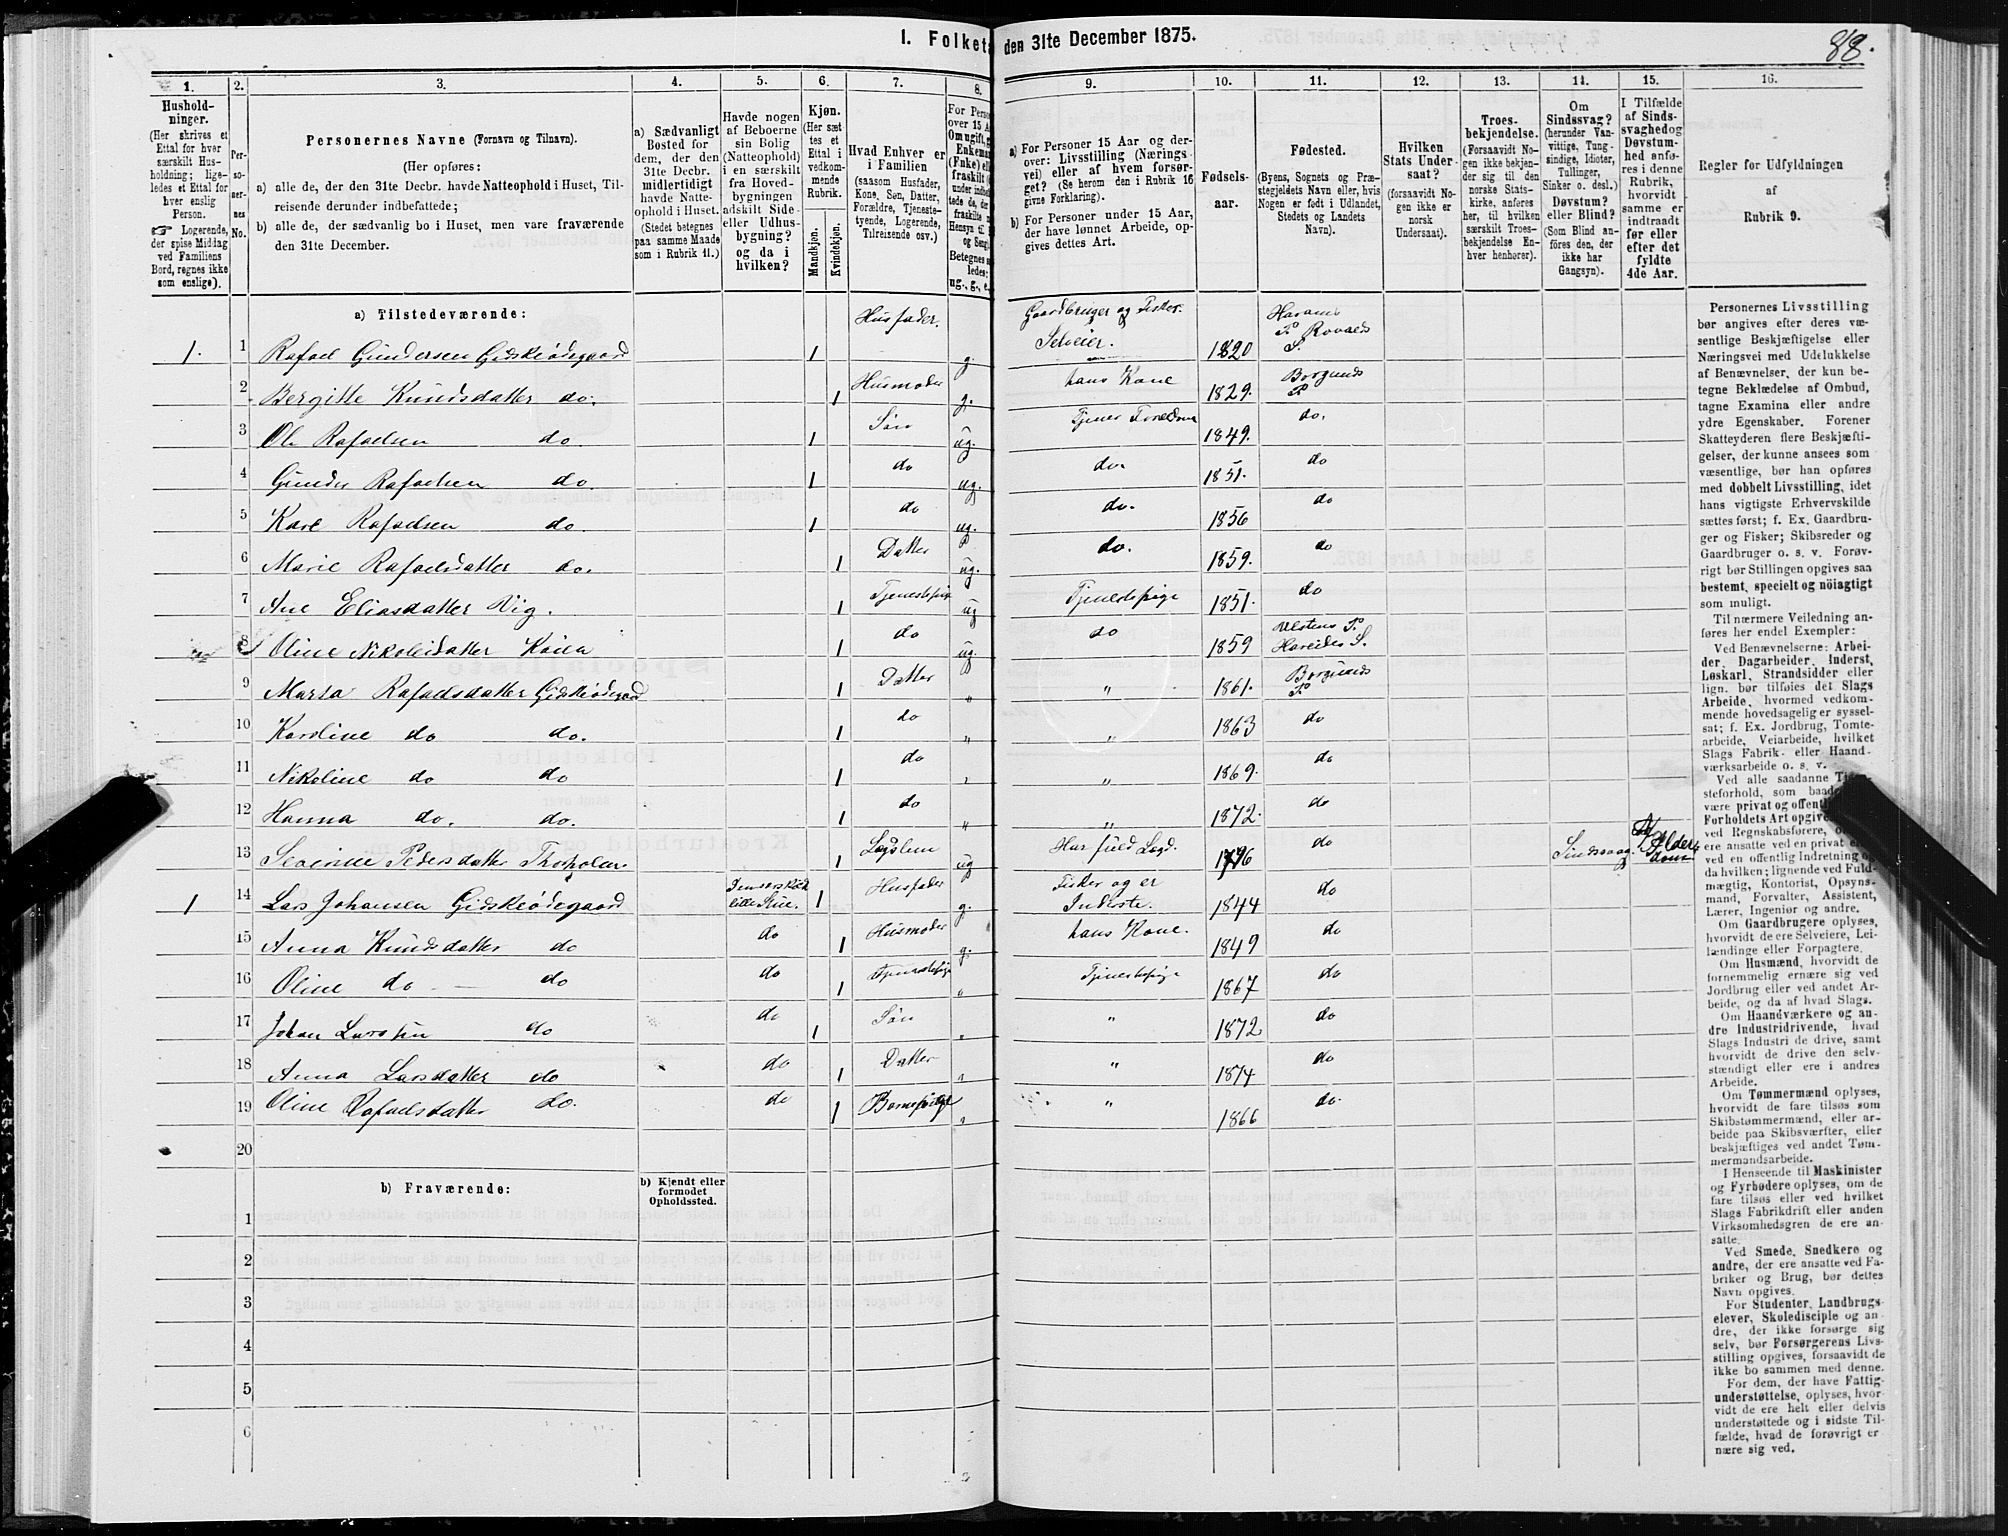 I. Folket den 31te December 1875.
88.
1.
Hushold-
ninger.
(Her skrives et
Ettal for hver
særskilt Hus-
holdning; lige-
ledes et Ettal for
hver enslig
Person.
☞ Logerende,
der spise Middag
ved Familiens
Bord, regnes ikke
som enslige).
2.
Per-
so-
ner-
nes
No.
3.
Personernes Navne (Fornavn og Tilnavn).
(Her opføres:
a) alle de, der den 31te Decbr. havde Natteophold i Huset, Til-
reisende derunder indbefattede;
b) alle de, der sædvanlig bo i Huset, men vare fraværende
den 31te December.
4.
a) Sædvanligt
Bosted for
dem, der den
31te Decbr.
midlertidigt
havde Natte-
ophold i Huset.
(Stedet betegnes
paa samme Maade
som i Rubrik 11.)
5.
Havde nogen
af Beboerne
sin Bolig
(Natteophold)
i en særskilt
fra Hoved-
bygningen
adskilt Side-
eller Udhus-
bygning?
og da i
hvilken?
6.
Kjøn.
(Her sæt-
tes et
Ettal i
vedkom-
mende
Rubrik.
Mandkjøn.
Kvindekjøn.
7.
Hvad Enhver er
i Familien
(saasom Husfader,
Kone, Søn, Datter,
Forældre, Tjeneste-
tyende, Logerende,
Tilreisende osv.)
8.
For Perso
over 15 A
Om ugift, g
Enkeman
(Enke) elle
fraskilt (
under indbe
tede de, der
fraskilte m
Hensyn til
og Seng
Betegnes s
ledes:
ug., g., e.
9.
a) For Personer 15 Aar og der-
over: Livsstilling (Nærings-
vei) eller af hvem forsør-
get? (Se herom den i Rubrik 16
givne Forklaring).
b) For Personer under 15 Aar,
der have lønnet Arbeide, op-
gives dettes Art.
10.
Fødsels-
aar.
11.
Fødested.
(Byens, Sognets og Præ-
stegjeldets Navn eller, hvis
Nogen er født i Udlandet,
Stedets og Landets
Navn).
12.
Hvilken
Stats Under-
saat?
(forsaavidt No-
gen ikke er
norsk
Undersaat).
13.
Troes-
bekjendelse.
(Forsaavidt No-
gen ikke bekjen-
der sig til den
norske Stats-
kirke, anføres
her, til hvilken
særskilt Troes-
bekjendelse En-
hver henhører).
14.
Om
Sindssvag?
(herunder Van-
vittige, Tung-
sindige, Idioter,
Tullinger,
Sinker o. desl.)
Døvstum?
eller Blind?
(Som Blind an-
føres den, der
ikke har
Gangsyn).
15.
I Tilfælde
af Sinds-
svaghed og
Døvstum-
hed anfø-
res i denne
Rubrik,
hvorvidt
samme er
indtraadt
før eller
efter det
fyldte
4de Aar.
16.
Regler for Udfyldningen
af
Rubrik 9.
a) Tilstedeværende:
1. 1 Rafael Gundersen Gidskeødegaard 1 Husfader. g Gaardbruger og Fisker. Selveier. 1820 Harams P. Rovalds S.
2 Bergitte Knudsdatter do. 1 Husmoder g. hans Kone 1829. Borgunds P.
3 Ole Rafaelsen do. 1 Søn ug. Tjener Foreldrene 1849. do.
4 Gunder Rafaelsen do. 1 do ug. do. 1851. do
5 Karl Rafaelsen do. 1 do ug. do. 1856 do
6 Marie Rafaelsdatter do. 1 Datter ug. do. 1859. do
7 Ane Eliasdatter Vig. 1 Tjenestepige ug Tjenestepige 1851. do
8 Oline Nikoleidatter 1 do ug. do 1859 Ulstens P. Hareides S.
9 Marta Rafaelsdatter Gidskeødegaard 1 Datter „ „ 1861. Borgunds P.
10 Karoline do do. 1 do „ „ 1863 do
11 Nikoline do do 1 do „ „ 1869. do
12 Hanna do. do. 1 do „ „ 1872. do
13 Pedersdatter 1 Lægslem ug Har fuld Lægd. 1796 do Sindssvag. Af Alderdom
1 14 Lars Johansen Gidskeødegaard lille Stue. 1 Husfader g. Fisker og er Inderste. 1844 do
15 Anna Knudsdatter do do 1 Husmoder g. hans Kone. 1849 do
16 Oline do — do do 1 Tjenestepige „ Tjenestepige 1867 do
17 Johan Larssen do do 1 Søn „ „ 1872 do
18 Anna Larsdatter do do 1 Datter „ „ 1874 do
19 Oline Rafaelsdatter do. do 1 Barnepige „ „ 1866 do.
20
b) Fraværende:
b) Kjendt eller
formodet
Opholdssted.
1
2
3
4
5
6
Personernes Livsstilling
bør angives efter deres væ-
sentlige Beskjæftigelse eller
Næringsvei med Udelukkelse
af Benævnelser, der kun be-
tegne Beklædelse af Ombud,
tagne Examina eller andre
ydre Egenskaber. Forener
Skatteyderen flere Beskjæfti-
gelser, der kunne ansees som
væsentlige, bør han opføres
med dobbelt Livsstilling, idet
hans vigtigste Erhvervskilde
sættes først; f. Ex. Gaardbru-
ger og Fisker; Skibsreder og
Gaardbruger o. s. v. Forøv-
rigt bør Stillingen opgives saa
bestemt, specielt og nöiagtigt
som muligt.
Til nærmere Veiledning an-
føres her endel Exempler:
Ved Benævnelserne: Arbei-
der, Dagarbeider, Inderst,
Løskarl, Strandsidder eller
lign. bør tilføies det Slags
Arbeide, hvormed vedkom-
mende hovedsagelig er syssel-
sat; f. Ex. Jordbrug, Tomte-
arbeide, Veiarbeide, hvilket
Slags Fabrik- eller Haand-
værksarbeide o. s. v.
Ved alle saadanne
steforhold, som
være privat og
Forholdets Art
ved Regnskabsførere,
ere ansatte ved en privat
ved en offentlig Indretning og
da hvilken; lignende ved Fuld-
mægtig, Kontorist, Opsyns-
mand, Forvalter, Assistent,
Lærer, Ingeniør og andre.
Om Gaardbrugere oplyses,
hvorvidt de ere Selveiere, Lei-
lændinge eller Forpagtere.
Om Husmænd, hvorvidt de
fornemmelig ernære sig ved
Jordbrug eller ved andet Ar-
beide, og da af hvad Slags.
Om Haandværkere og an-
dre Industridrivende, hvad
Slags Industri de drive, samt
hvorvidt de drive den selv-
stændigt eller ere i andres
Arbeide.
Om Tømmermænd oplyses,
hvorvidt de fare tilsøs som
Skibstømmermænd, eller ar-
beide paa Skibsværfter, eller
beskjæftiges ved andet Tøm-
mermandsarbeide.
I Henseende til Maskinister
og Fyrbødere oplyses, om de
fare tilsøs eller ved hvilket
Slags Fabrikdrift eller anden
Virksomhedsgren de ere an-
satte.
Ved Smede, Snedkere og
andre, der ere ansatte ved Fa-
briker og Brug, bør dettes
Navn opgives.
For Studenter, Landbrugs-
elever, Skoledisciple og an-
dre, der ikke forsørge sig
selv, bør Forsørgerens Livs-
stilling opgives, forsaavidt de
ikke bo sammen med denne.
For dem, der have Fattig-
understøttelse, oplyses, hvor-
vidt de ere helt eller delvis
understøttede og i sidste Til-
fælde, hvad de forøvrigt er-
nære sig ved.